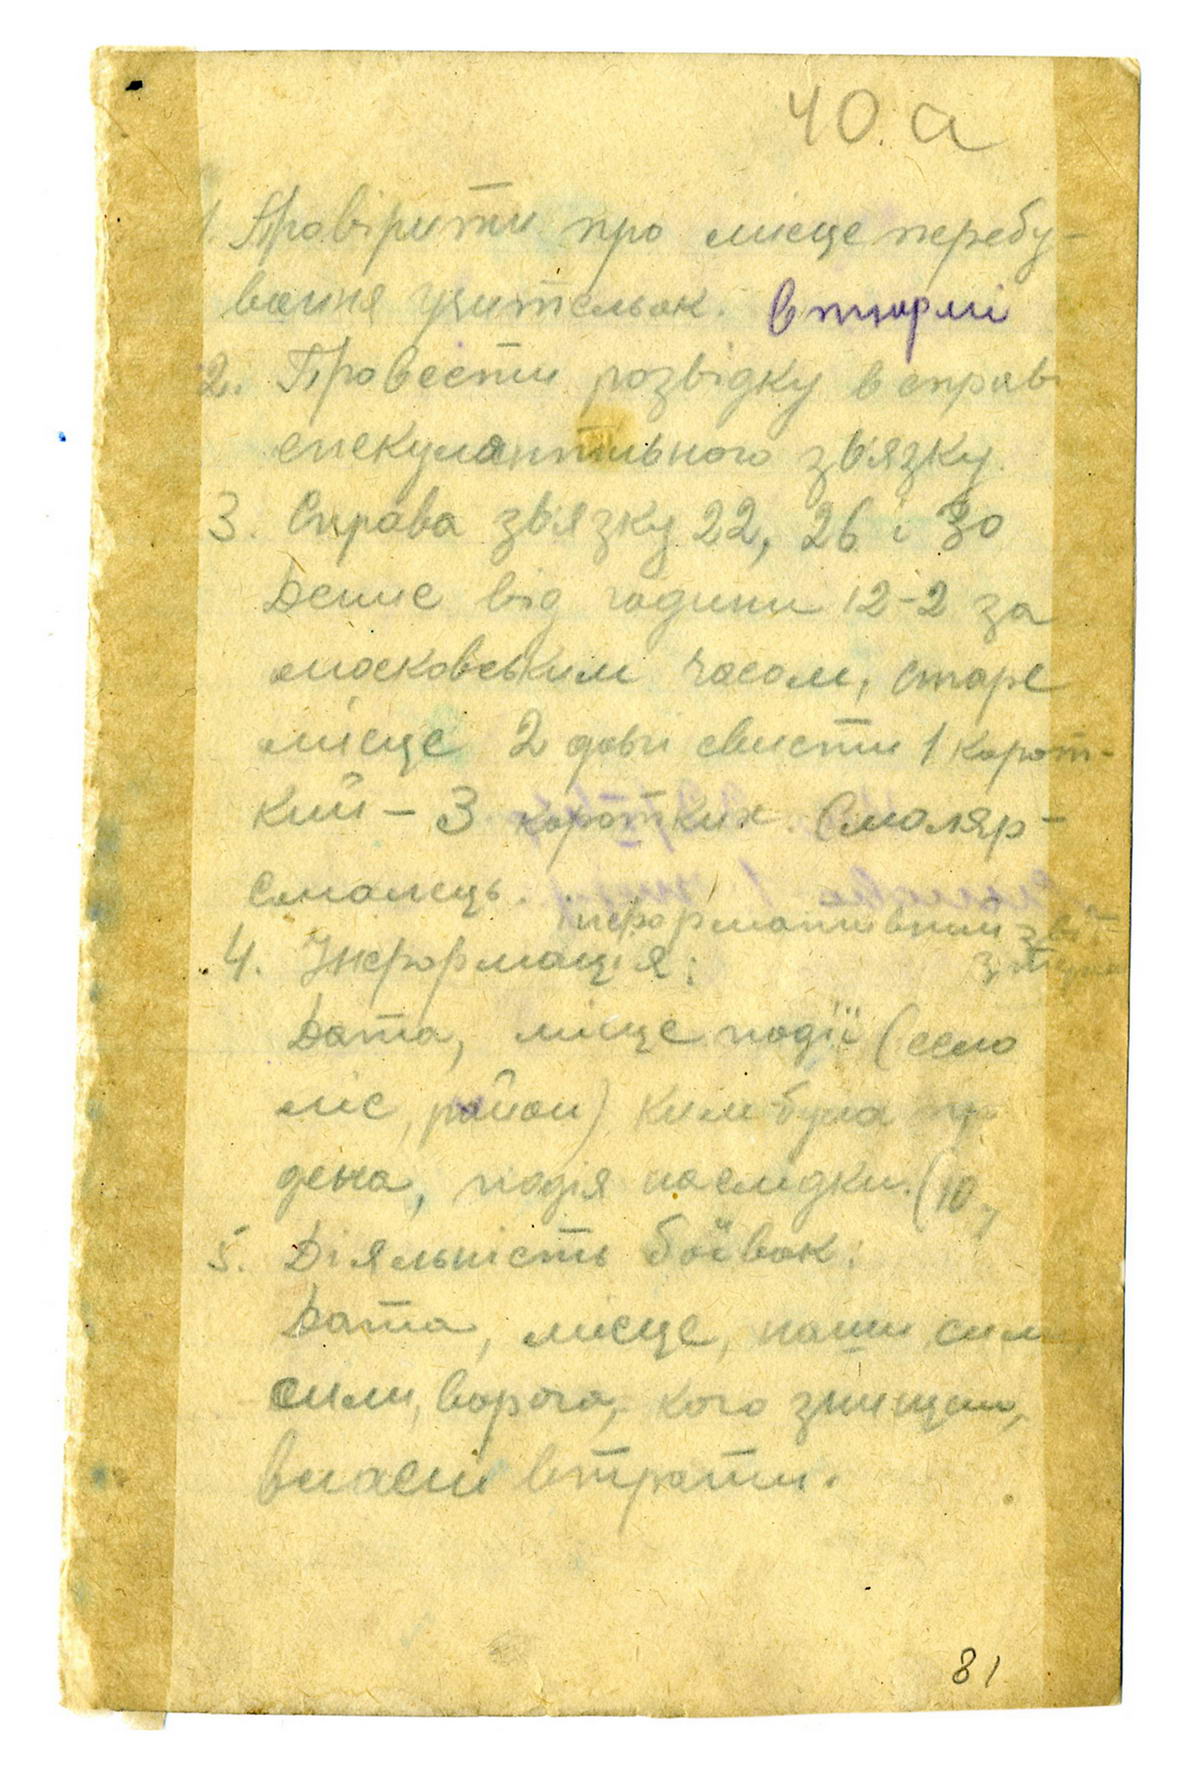 40.а
1. Провірити про місце перебу-
вання учительок. в тюрмі
2. Провести розвідку в справі
спекулянтивного зв'язку
3. Справа зв'язку 22, 26 і 30
Денис від години 12-2 за
московським часом, старе
місце 2 довгі свисти 1 корот-
кий – 3 коротких. Смоляр-
смалець.
інформативний звіт
4. Інформація:
Дата, місце події (село
ліс, район) Ким була
дена, подія наслідки. (10
5. Діяльність боївок:
Дата, місце, наши сили
сили, ворога, кого знищено,
власні втрати.
81